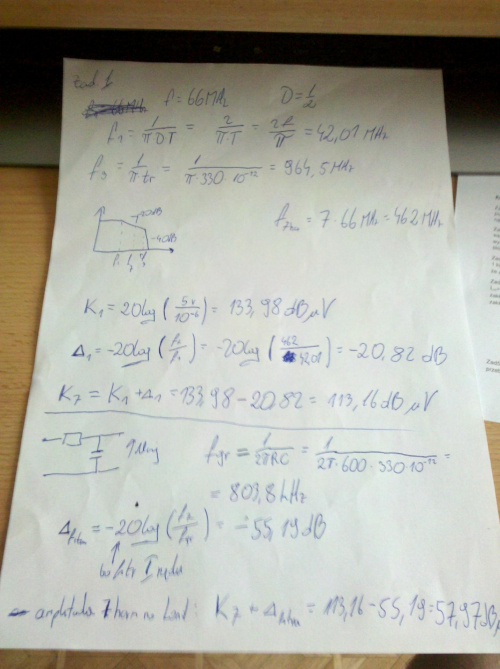 zad 1
f = 66 MHz D = 1/2
f1 = 1/(π D T) = 2/(π·T) = 2f/π = 42,01 MHz
f3 = 1/(π tr) = 1/(π·330·10^-12) = 964,5 MHz
-20dB
-40dB
f7hm = 7·66 MHz = 462 MHz
K1 = 20log(5V/10^-6) = 133,98 dBμV
Δ1 = -20log(f2/f1) = -20log(462/42,01) = -20,82 dB
K7 = K1 + Δ1 = 133,98 - 20,82 = 113,16 dBμV
fgr = 1/(2πRC) = 1/(2π·600·330·10^-12) =
= 803,8 kHz
Δfiltra = -20log(fx/fgr) = -55,19 dB
bo filtr I rzędu
- amplituda 7 harm na kond: K7 + Δfiltra = 113,16 - 55,19 = 57,97 dBμ